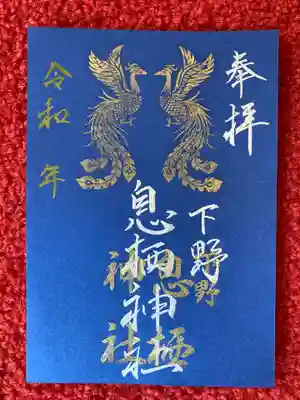 奉拝
下野
息栖神社
息栖
神社
令和 年